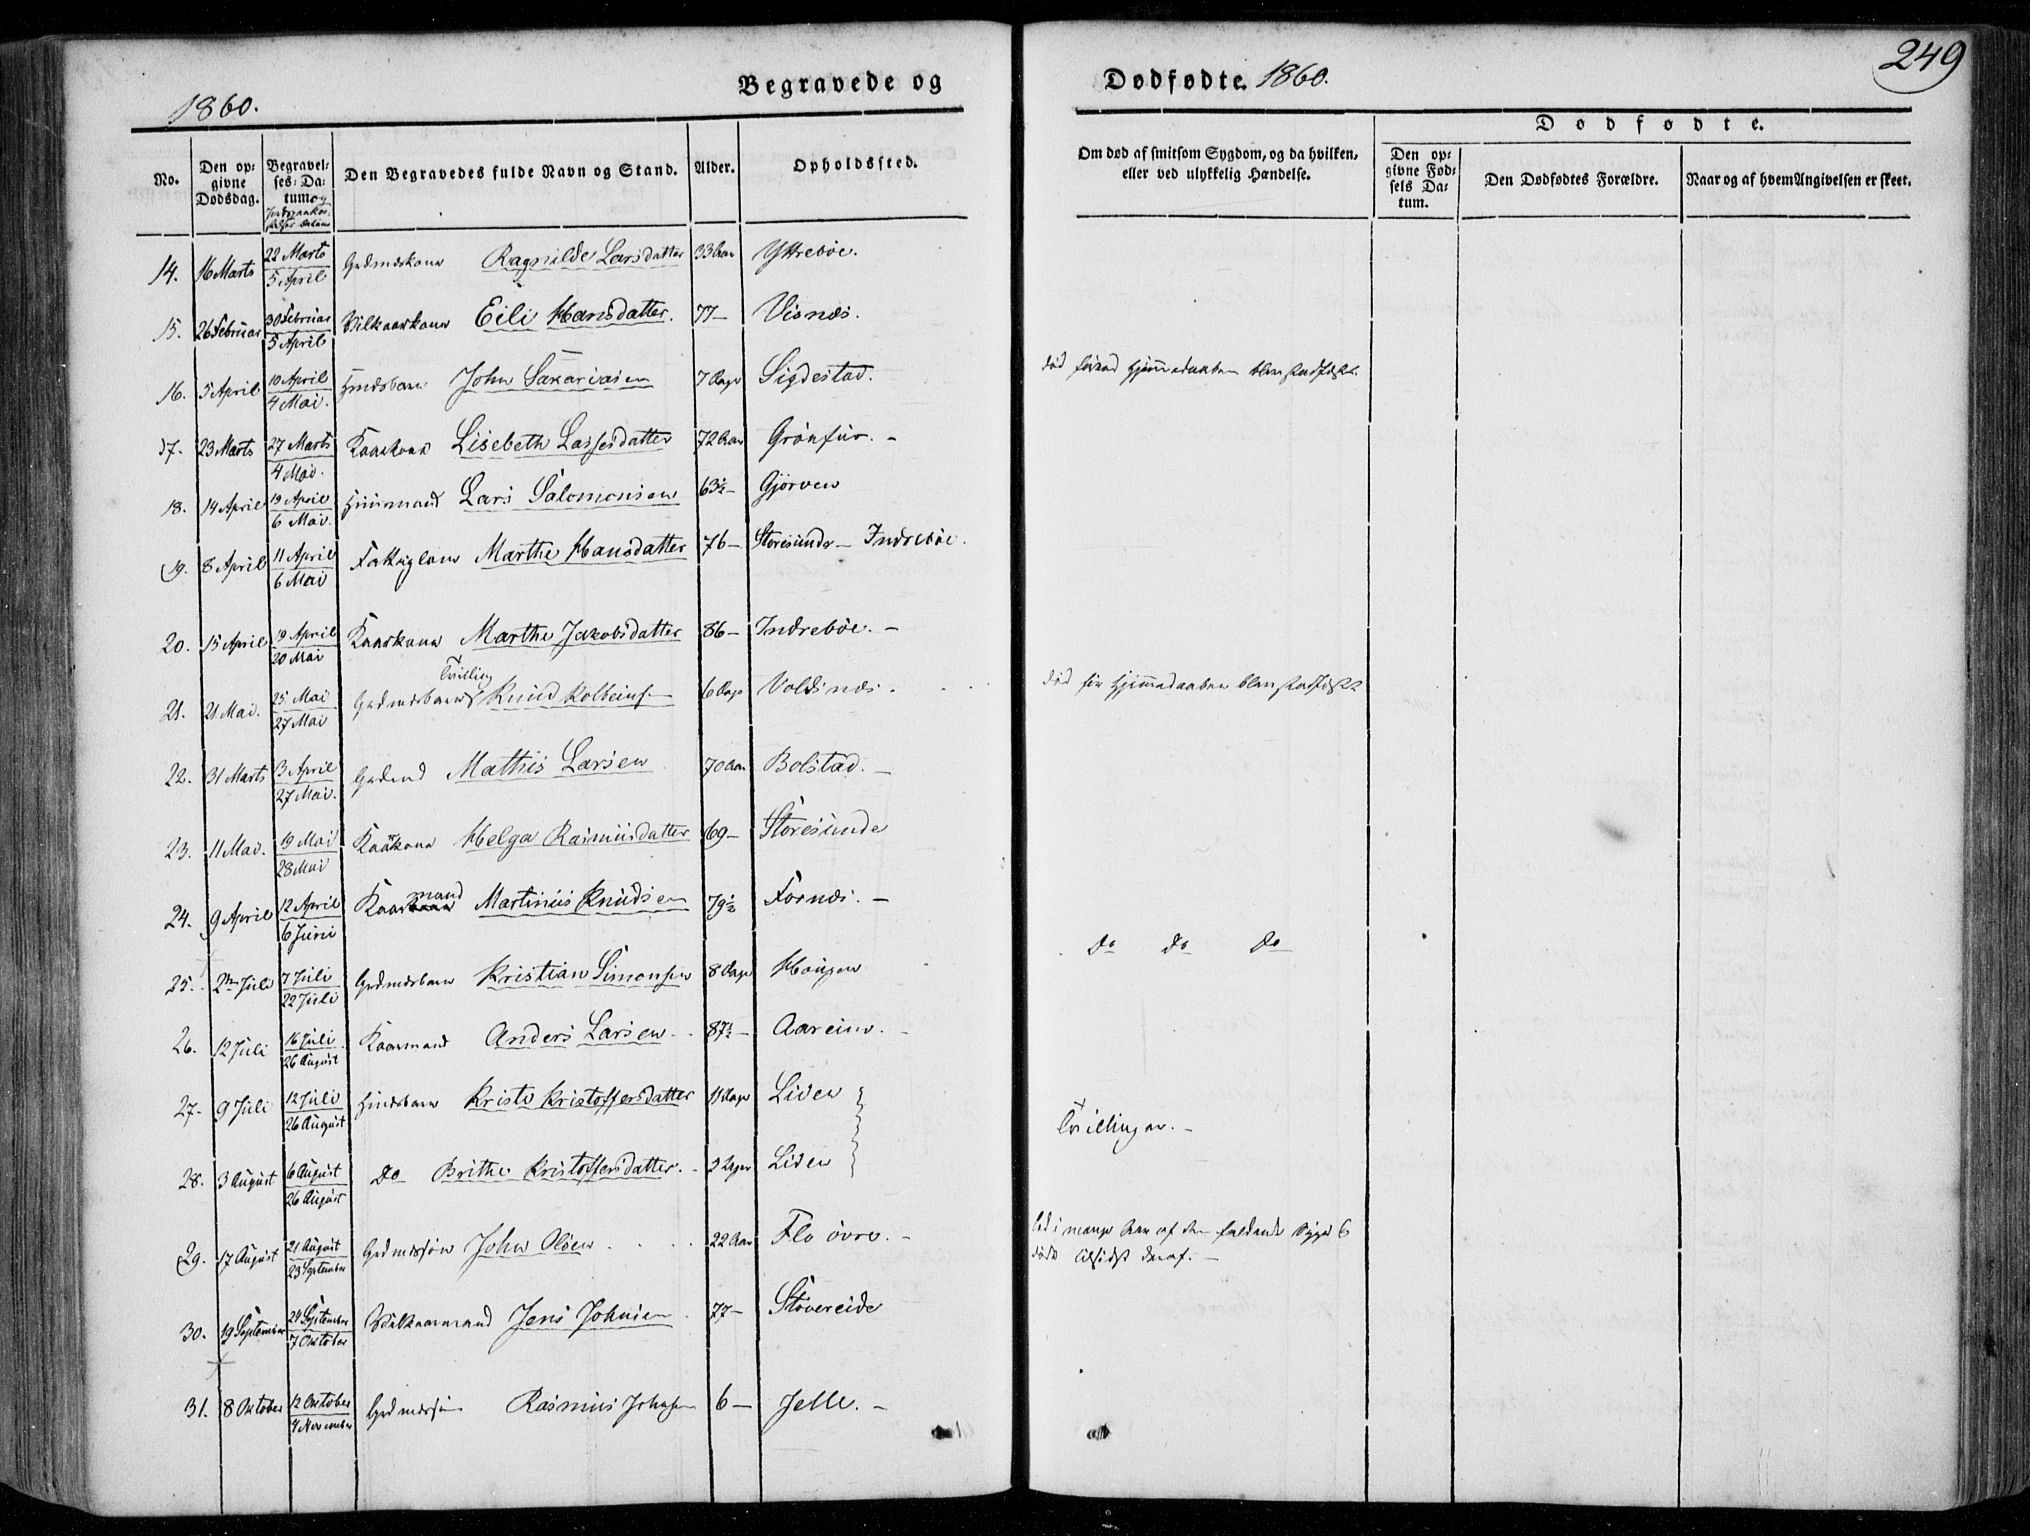 249
Begravede og
Dødfødte. 1860.
1860.
Dødfødte.
No.
Den opgivne Dødsdag.
Begravelses-Datum og
Den Begravedes fulde Navn og Stand.
Alder.
Opholdssted.
Om død af smitsom Sygdom, og da hvilken, eller ved ulykkelig Hændelse.
Den opgivne Fødsels Datum.
Den Dødfødtes Forældre.
Naar og af hvem Angivelsen er skeet.
14. 16 Marts 22 Marts 5 April Grdmdskone Ragnilde Larsdatter 33 Aar Yttrebøe.
15. 26 Februar 30 Februar 5 April Vilkaarskone Eili Hansdatter. 77 — Visnæs.
16. 5 April 10 April 4 Mai. Hmdsbarn John Saxariasen 7 Dage Sigdestad. død førend Hjemmedaaben blev stadfæstet.
17. 23 Marts 27 Marts 4 Mai. Kaarkone Lisebeth Lassesdatter 72 Aar Grönfur. —
18. 14 April 19 April 6 Mai. Huusmand Lars Salomonsen 63½ — Gjørven
19. 8 April 11 April 6 Mai Fattiglem Marthe Hansdatter 76 — Storesunde — Indrebøe.
20. 15 April 19 April 20 Mai Kaarkone Marthe Jakobsdatter 86 — Indrebøe. —
21. 21 Mai. 25 Mai 27 Mai Grdmdsbarn Tvilling Knud Kolbeinsen 6 Dage Voldsnæs. død før Hjemmedaaben blev stadfæstet
22. 31 Marts 3 April 27 Mai. Grdmd Mathis Larsen 70 Aar Bolstad. —
23. 11 Mai. 19 Mai 28 Mai Kaarkone Helga Rasmusdatter 69 — Storesunde
24. 9 April 12 April 6 Juni Kaarmand Martinus Knudsen 79½ Fornæs. —
25. 2den Juli 7 Juli 22 Juli Grdmdsbarn Kristian Simonsen 8 Dage Hougen Do Do Do
26. 12 Juli 16 Juli 26 August Kaarmand Anders Larsen. 87½ — Aareim. —
27. 9 Juli 12 Juli 26 August Hmdsbarn Kristi Kristoffersdatter 11 Dage Liden
Tvillinger. —
28. 3 August 6 August 26 August Do Brithe Kristoffersdatter. Liden
29. 17 August 21 August 23 September Grdmdssøn John Olsen 22 Aar Flo øvre. — led i mange Aar af den faldende Syge &
døde tilsidst deraf. —
30. 19 September 24 September 7 Oktober Vilkaarmand Jens Johnsen 77 — Støvereide
31. 8 Oktober 12 Oktober 4 November Grdmdssøn Rasmus Johnsen 6 — Jelle. —